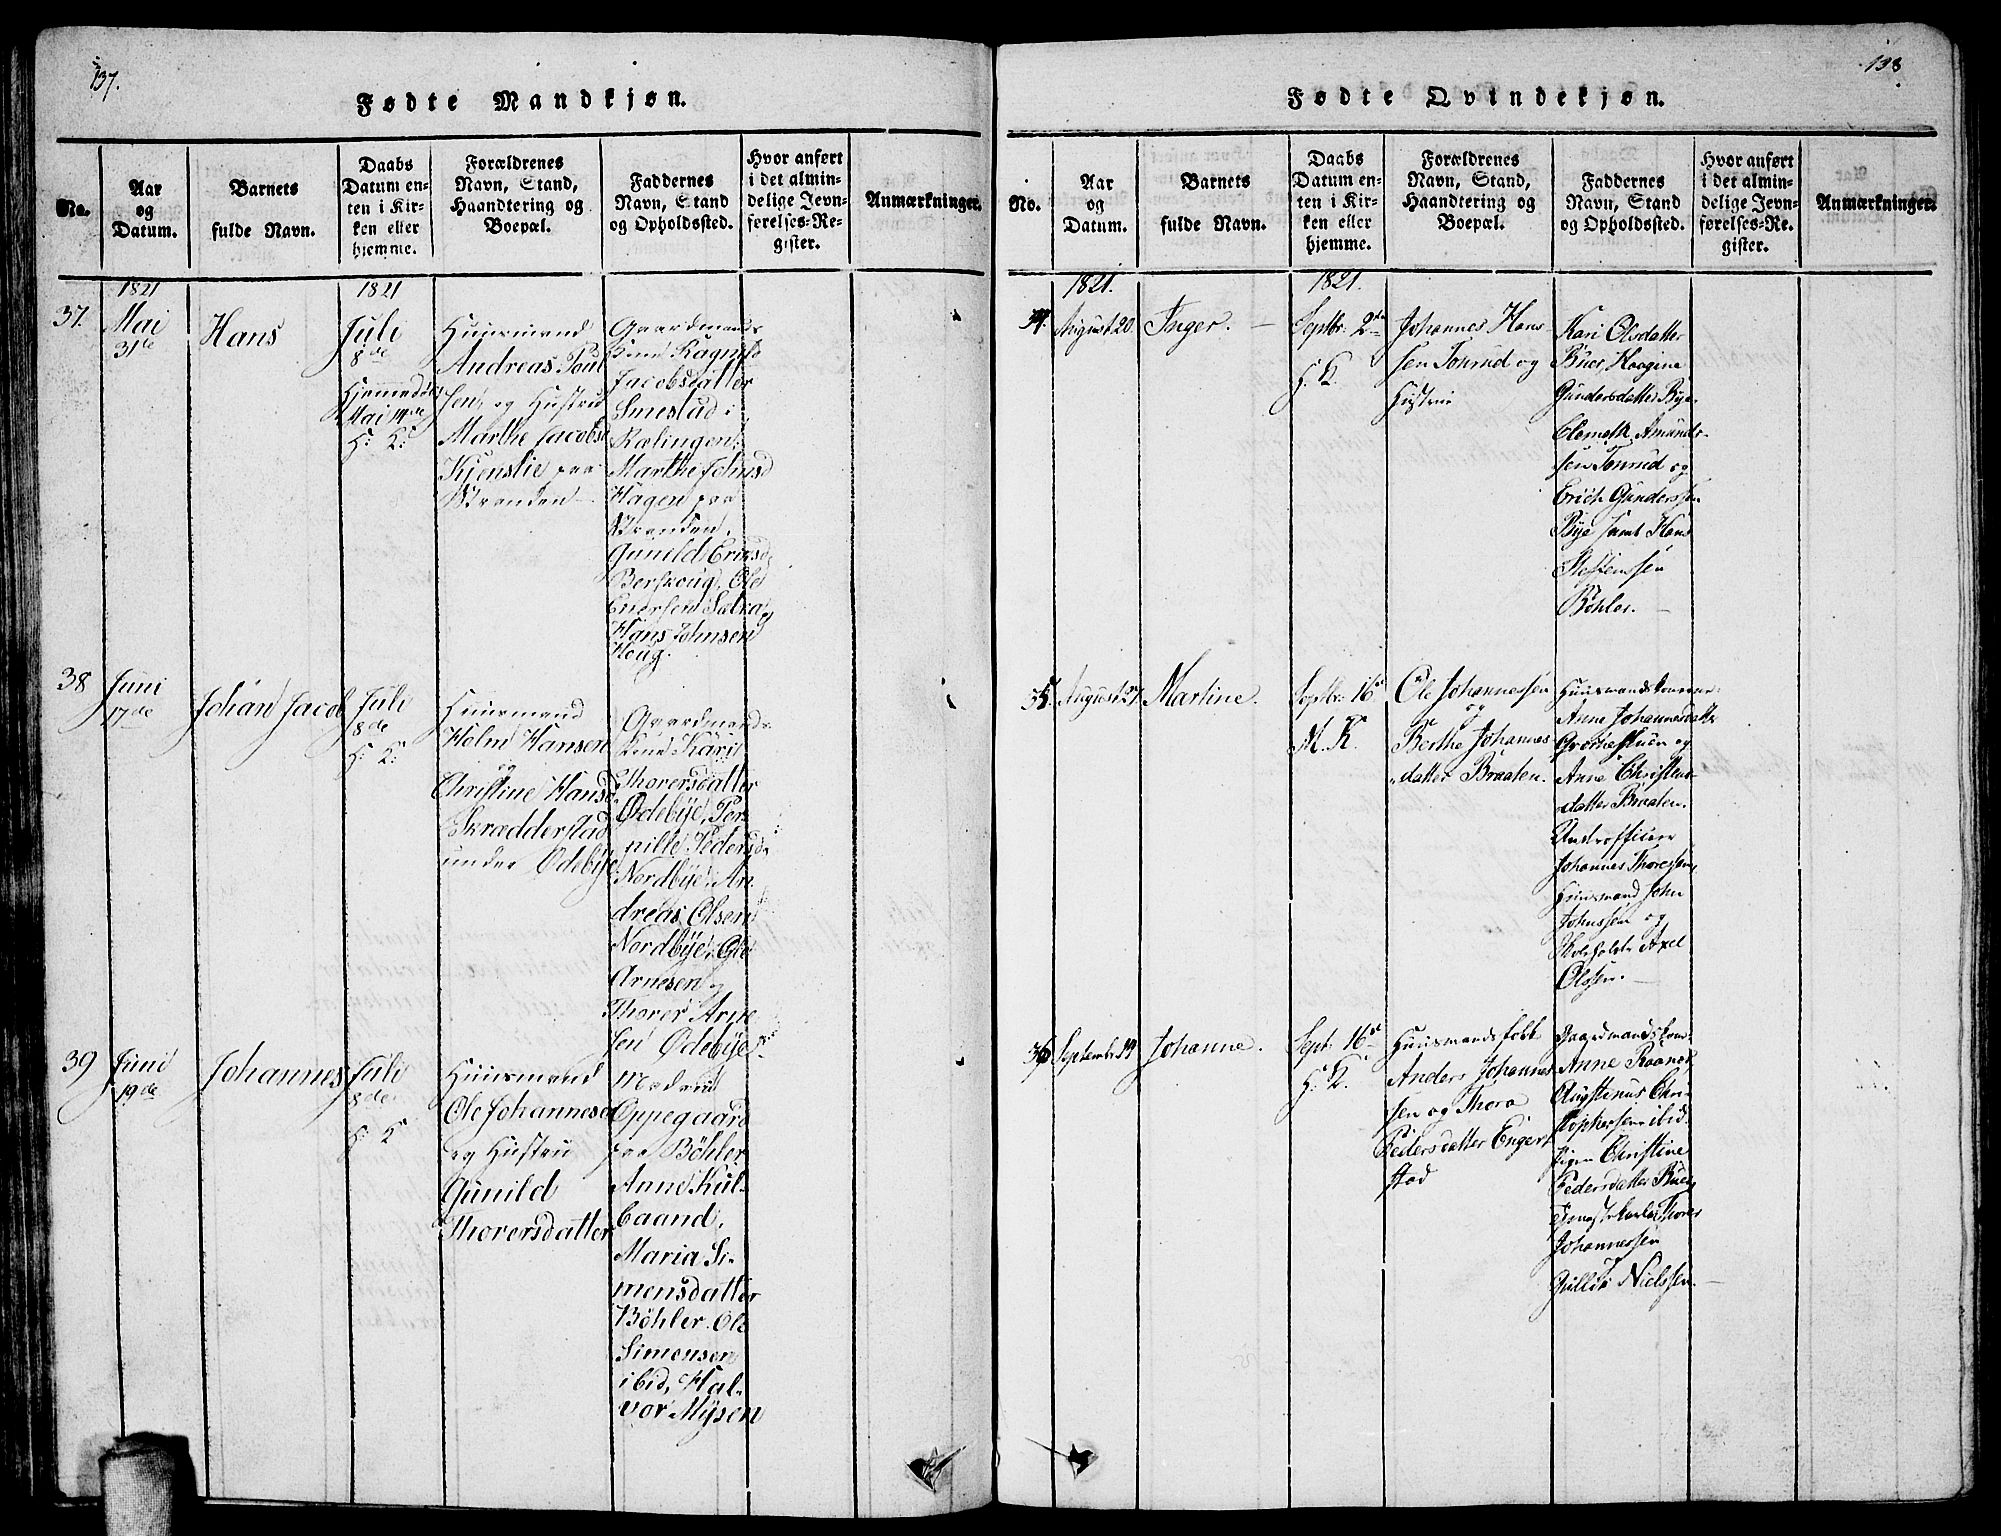 137.
Fødte Mandkjøn.
No.
Aar
og
Datum.
Barnets
fulde Navn.
Daabs
Datum en-
ten i Kir-
ken eller
hjemme.
Forældrenes
Navn, Stand,
Haandtering og
Boepæl.
Faddernes
Navn, Stand
og Opholdssted.
Hvor anført
i det almin-
delige Jevn-
førelses-Re-
gister.
Anmærkninger.
37.
1821
Mai
31te
Hans
1821
Juli
8de
Hjemmedøbt
Mai 14de
H: K:
Huusmand
Andreas Poul
sen og Hustru
Marthe Jacobsd
Kjenslie paa
Stranden
Gaardmands
Kone Ragnild
Jacobsdatter
Smestad i
Rælingen,
Marthe Johnsd
Hagen paa
Stranden,
Gunild Eriksd
Berskoug, Ole
Enersen Satra og
Hans Johnsen
Houg.
38
Juni
17de
Johan Jacob
Juli
8de
H: K:
Huusmand
Holm Hansen
og
Christine Hansd
Skrædderstad
under Ødebye
Gaardmands
Kone Kari
Thorersdatter
Ødebye, Per-
nille Pedersd
Nordbye, An-
dreas Olsen
Nordbye, Ole
Arnesen og
Thorer Arne
sen Ødebye
39
Juni
19de
Johannes
Juli
8de
H: K
Huusmand
Ole Johannesen
og Hustru
Gunild
Thorersdatter
Madam
Oppegaard
paa Bøhler,
Anne Kul-
baand,
Maria Si-
mensdatter
Bøhler. Ole
Simensen
ibid, Hal-
vor Mysen
138
Fødte Qvindekjøn.
No.
Aar
og
Datum.
Barnets
fulde Navn.
Daabs
Datum en-
ten i Kir-
ken eller
hjemme.
Forældrenes
Navn, Stand,
Haandtering og
Boepæl.
Faddernes
Navn, Stand
og Opholdssted.
Hvor anført
i det almin-
delige Jevn-
førelses-Re-
gister.
Anmærkninger.
34.
1821.
August 20.
Inger.
1821.
Septbr: 2den
H. K.
Johannes Han-
sen Tonrud og
Hustrue
Kari Olsdatter
Buer, Haagine
Gundersdatter Bye
Clemeth Amunds-
sen Tonrud og
Erich Gunderssen
Bye samt Hans
Steffenssen
Bøhler.
35.
August 27.
Martine.
Septbr: 16de
M. K.
Ole Johannessen
og
Berthe Johannes-
datter Braaten.
Huusmandskonerne
Anne Johannesdatter
Grothestuen og
Anne Christens-
datter Braaten.
Underofficeer
Johannes Thoressen
Huusmand John
Johnssen og
Axel
Olssen.
36
September 14
Johanne.
Sept: 16de
H. K.
Huusmandsfolk
Anders Johannes
sen og Thora
Pedersdatter Enger-
stad
Gaardmandskone
Anne Raanaas
Augstinus Chri-
stophersen ibid.
Pigen Christine
Pedersdatter Buer
Thorer
Johannessen
Nielssen.